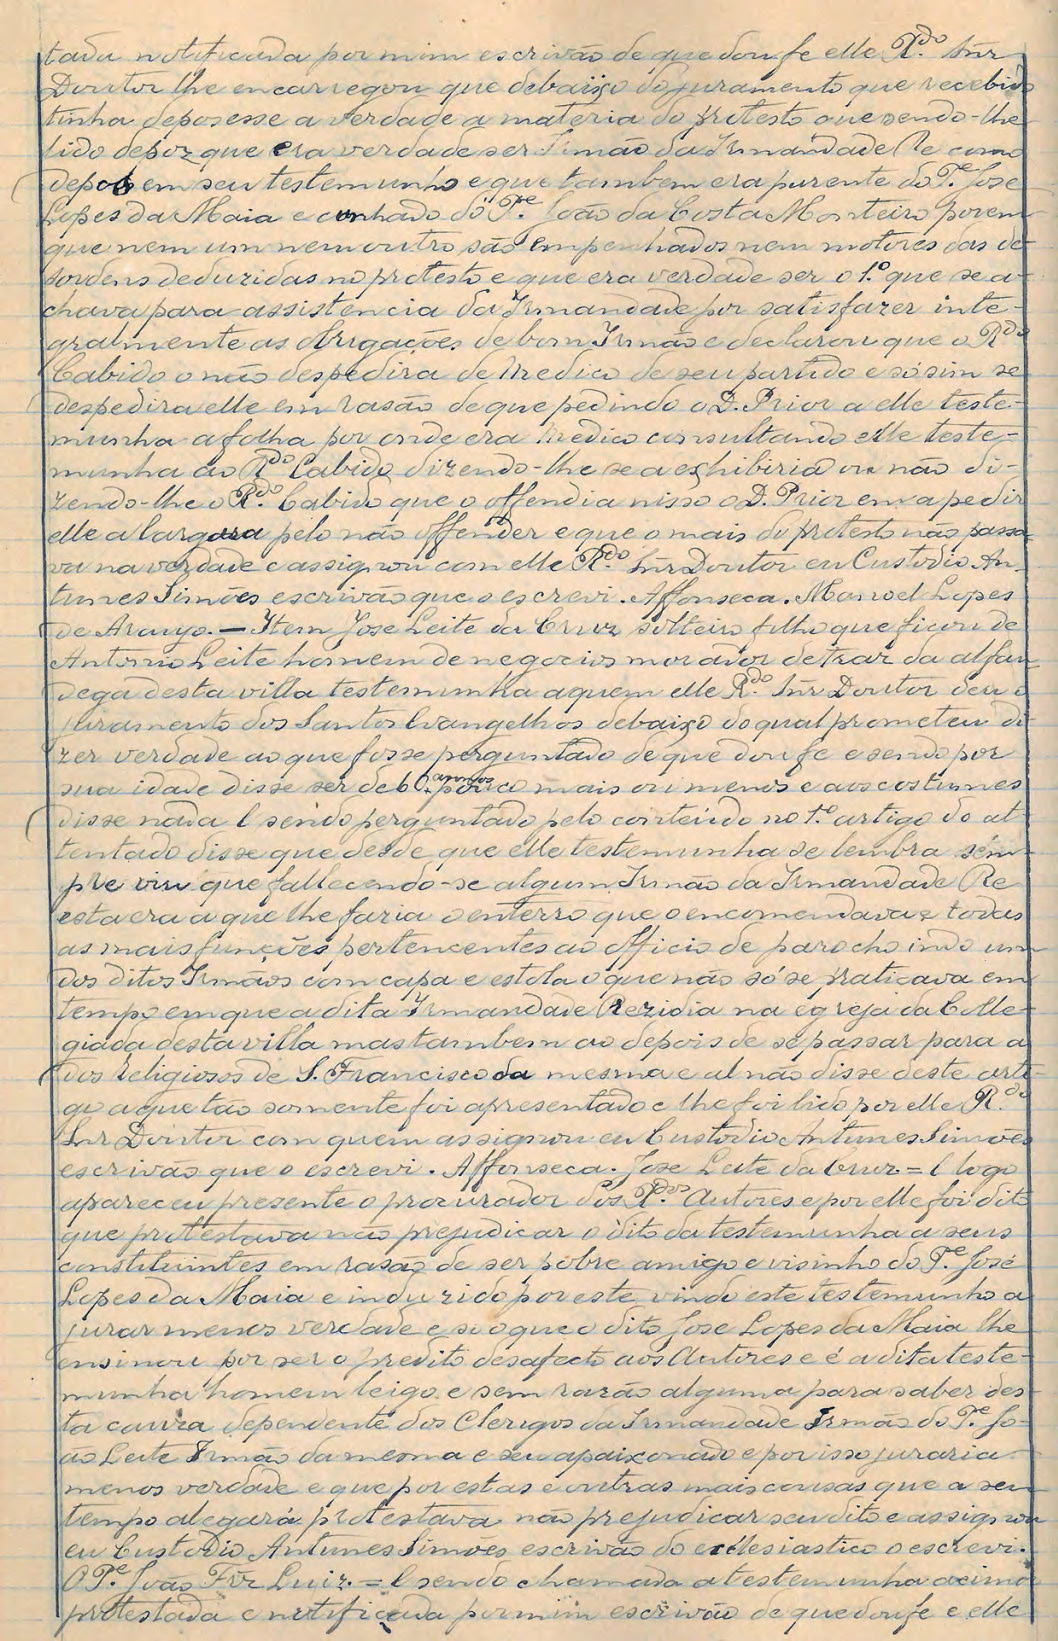 tada notificada por mim escrivão de que dou fe elle R.do Snr
Doutor lhe encarregou que debaixo do juramento que recebido
tinha deposesse a verdade a materia do protesto que sendo-lhe
lido depoz que era verdade ser Irmão da Irmandade Re como
depos em seu testemunho e que tambem era parente do P.e Jose
Lopes da Maia e cunhado do P.e João da Costa Monteiro porem
que nem um nem outro são empenhados nem motores das de-
sordens deduzidas no protesto e que era verdade ser o 1.o que se a-
chava para assistencia da Irmandade por satisfazer inte-
gralmente as obrigações de bom Irmão e declarou que o R.do
Cabido o não despedira de Medico de seu partido e só sim se
despedira elle em rasão de que pedindo o D. Prior a elle teste-
munha a folha por onde era Medico consultando elle teste-
munha ao R.do Cabido dizendo-lhe se a exhibiria ou não di-
zendo-lhe o R.do Cabido que o offendia nisso o D. Prior em a pedir
elle a largara pelo não offender e que o mais do protesto não passa-
va na verdade e assignou com elle R.do Snr Doutor eu Custodio An-
tunes Simões escrivão que o escrevi. Affonseca. Manoel Lopes
de Araujo. — Item Jose Leite da Cruz solteiro filho que ficou de
Antonio Leite homem de negocios morador detraz da alfan-
dega desta villa testemunha a quem elle R.do Snr Doutor deu o
juramento dos Santos Evangelhos debaixo do qual prometeu di-
zer verdade ao que fosse perguntado de que dou fe e sendo por
sua idade disse ser de 60 annos pouco mais ou menos e aos costumes
disse nada E sendo perguntado pelo conteúdo no 1.o artigo do at-
tentado disse que desde que elle testemunha se lembra sem-
pre viu que fallecendo-se algum Irmão da Irmandade Re
esta era a que lhe faria o enterro que o encomendava e todas
as mais funções pertencentes ao officio de parocho indo um
dos ditos Irmãos com capa e estola o que não só se praticava em
tempo em que a dita Irmandade Rezidia na egreja da Colle-
giada desta villa mas tambem ao depois de se passar para a
dos religiosos de S. Francisco da mesma e al não disse deste arti-
go a que tão somente foi apresentado e lhe foi lido por elle R.do
Snr Doutor com quem assignou eu Custodio Antunes Simões
escrivão que o escrevi. Affonseca. Jose Leite da Cruz = E logo
apareceu presente o procurador dos R.dos Autores e por elle foi dito
que protestava não prejudicar o dito da testemunha a seus
constituintes em rasão de ser pobre amigo e visinho do P.e José
Lopes da Maia e induzido por este vindo este testemunho a
jurar menos verdade e só o que o dito Jose Lopes da Maia lhe
ensinou por ser o predito desafecto aos Autores e é a dita teste-
munha homem leigo e sem razão alguma para saber des-
ta causa dependente dos Clerigos da Irmandade Irmão do P.e Jo-
ão Leite Irmão da mesma e seu apaixonado e por isso juraria
menos verdade e que por estas e outras mais causas que a seu
tempo alegará protestava não prejudicar seu dito e assignou
eu Custodio Antunes Simões escrivão do ecclesiastico o escrevi.
O P.e João Frz Luiz. = E sendo chamada a testemunha acima
protestada e notificada por mim escrivão de que dou fe e elle